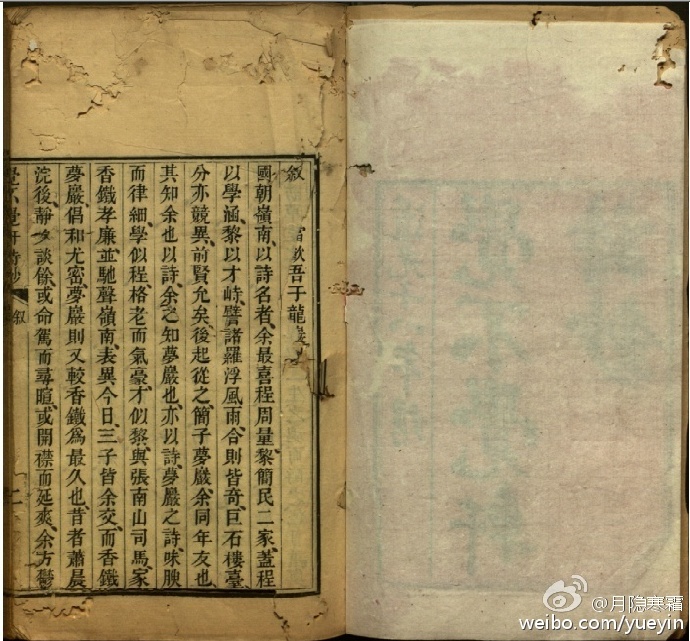 叙
吾于龍
國朝嶺南以詩名者余最喜程周量黎簡民二家蓋程
以學涵黎以才峙譬諸羅浮風雨合則皆奇巨石樓臺
分亦競異前賢允矣後起從之簡子夢巖余同年友也
其知余也以詩余之知夢巖也亦以詩夢巖之詩味腴
而律細學似程格老而氣豪才似黎與張南山司馬家
香鐵孝廉並馳聲嶺南表異今日三子皆余交而香鐵
夢巖倡和尤密夢巖則又較香鐵為最久也昔者蕭晨
浣後靜夕談餘或命駕而尋暄或開襟而延爽余方鬱
叙
@月隐寒霜
weibo.com/yueyin